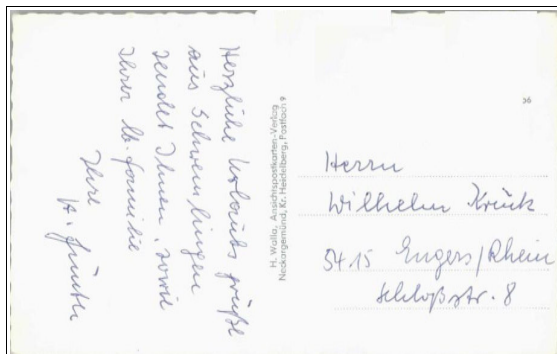 Herzliche Urlaubs grüße
aus Schwetzingen
sendet Ihnen, sowie
Ihrer lb. Familie
Ihre
H. Günter
H. Walla, Ansichtspostkarten-Verlag
Neckargemünd, Kr. Heidelberg, Postfach 9
36
Herrn
Wilhelm Krück
5415 Engers/Rhein
Schloßstr. 8